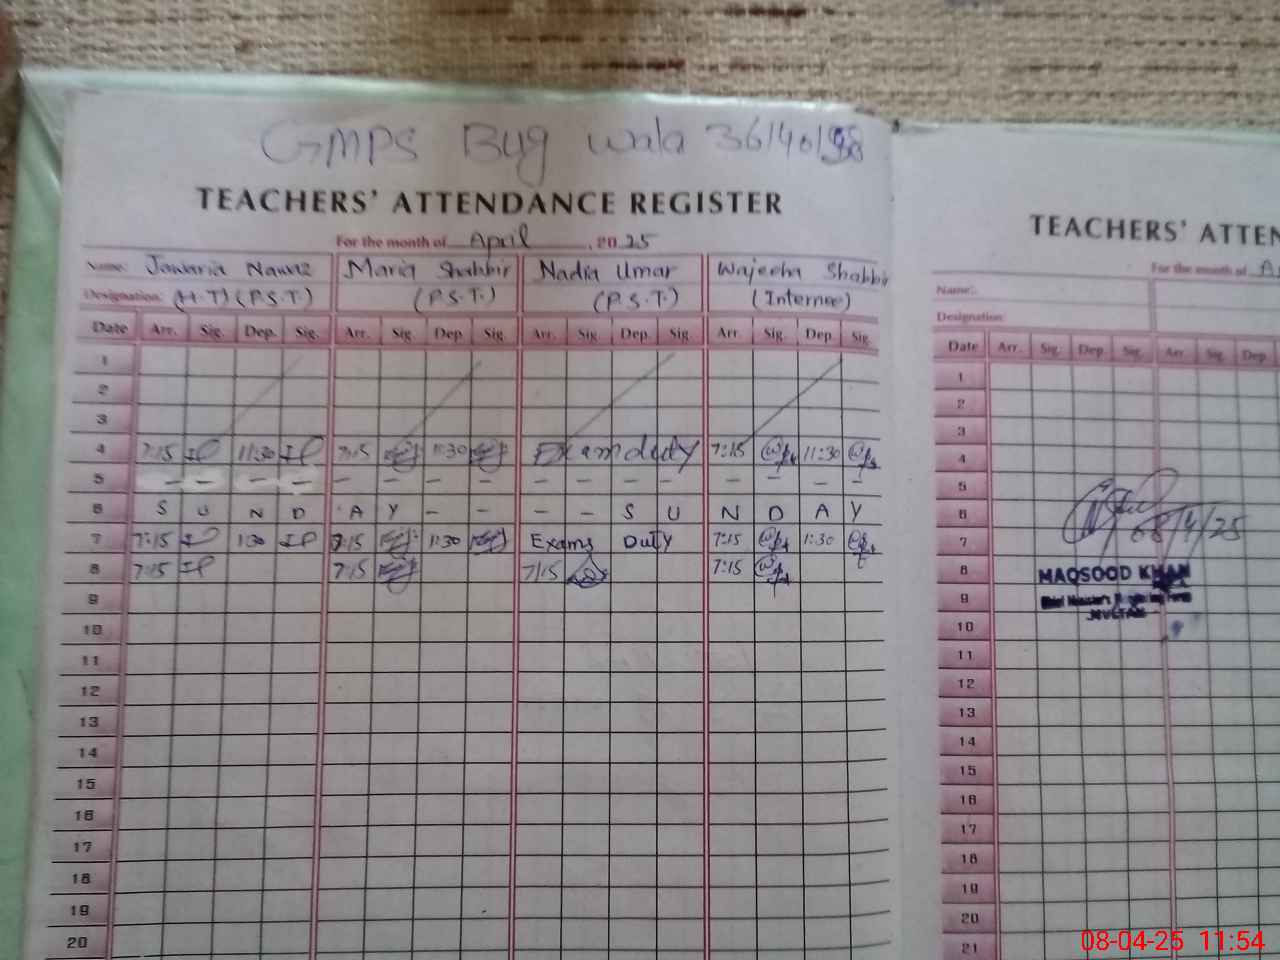 GMPS Bug wala 36140198
TEACHERS' ATTENDANCE REGISTER
For the month of April, 2025
Name: Jawaria Nawaz Maria Shabbir Nadia Umar Wajeeha Shabbir
Designation: (H.T) (P.S.T.) (P.S.T.) (P.S.T.) (Internee)
Date Arr. Sig. Dep. Sig. Arr. Sig. Dep. Sig. Arr. Sig. Dep. Sig. Arr. Sig. Dep. Sig.
1
2
3
4 7:15 11:30 7:15 11:30 Exam duty 7:15 11:30
5 – – – – – – – – – – – – – – – –
6 S U N D A Y – – – – S U N D A Y
7 7:15 1:30 7:15 1:30 Exams Duty 7:15 1:30
8 7:15 7:15 7:15 7:15
9
10
11
12
13
14
15
16
17
18
19
20
TEACHERS' ATTEN
For the month of Ap
Name:
Designation:
Date Arr. Sig. Dep. Sig. Arr. Sig. Dep.
1
2
3
4
5
6
08/4/25
7
8
MAQSOOD KHAN
9
MULTAN
10
11
12
13
14
15
16
17
18
19
20
21
08-04-25 11:54